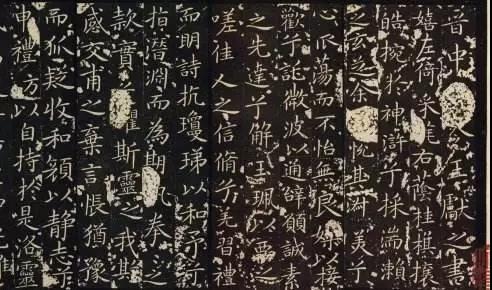 晉中令王獻之書
嬉左倚采旄右蔭桂旗攘
皓腕於神滸兮採湍瀨
之玄芝余悅其淑美兮
心振蕩而不怡無良媒以接
歡兮託微波以通辭願誠素
之先達兮解玉珮以要之
嗟佳人之信脩兮羌習禮
而明詩抗瓊珶以和予兮
指潛淵而為期執拳之
款實兮懼斯靈之我欺
感交甫之棄言悵猶豫
而狐疑收和顏以靜志兮
申禮防以自持於是洛靈